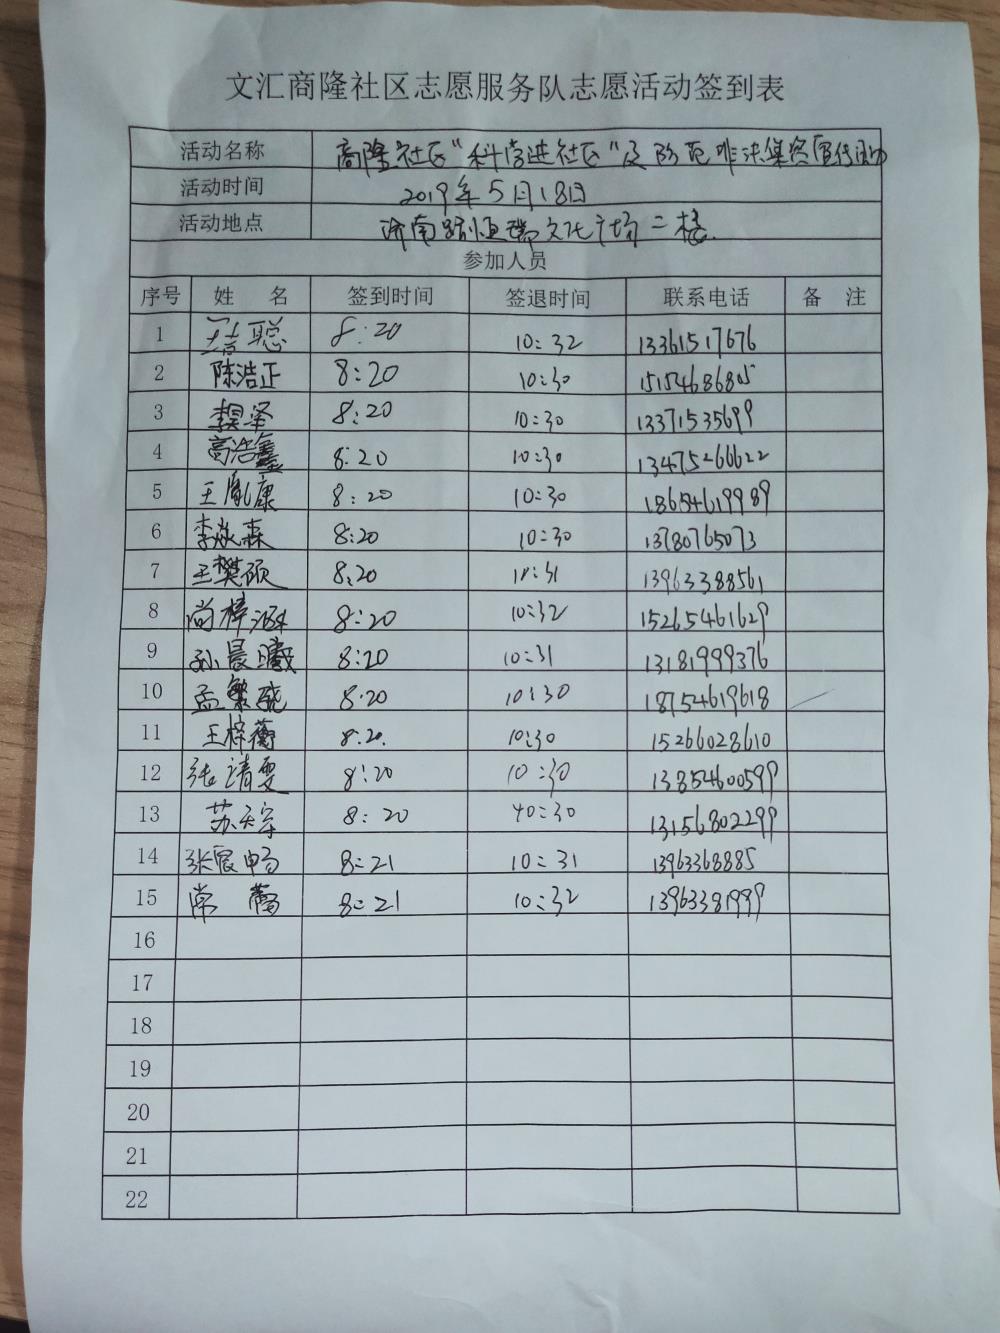 文汇商隆社区志愿服务队志愿活动签到表
活动名称 商隆社区“科普进社区”及防范非法集资宣传活动
活动时间 2019年5月18日
活动地点 济南路恒瑞文化广场二楼.
参加人员
序号 姓 名 签到时间 签退时间 联系电话 备 注
1 聪 8:20 10:32 13361517676
2 陈浩正 8:20 10:30 15154686805
3 李昊泽 8:20 10:30 13371535699
4 高浩鑫 8:20 10:30 13475266622
5 王胤康 8:20 10:30 18654619989
6 李焱森 8:20 10:30 13780765073
7 王樊硕 8:20 10:31 13963388561
8 尚梓涵 8:20 10:32 15265461629
9 孙晨曦 8:20 10:31 13181999376
10 孟繁硫 8:20 10:30 18754619618
11 王梓蘅 8:20. 10:30 15266028610
12 张靖雯 8:20 10:30 13854600599
13 苏天宇 8:20 10:30 13156802299
14 张宸畅 8:21 10:31 13963368885
15 常 蕾 8:21 10:32 13963381999
16
17
18
19
20
21
22